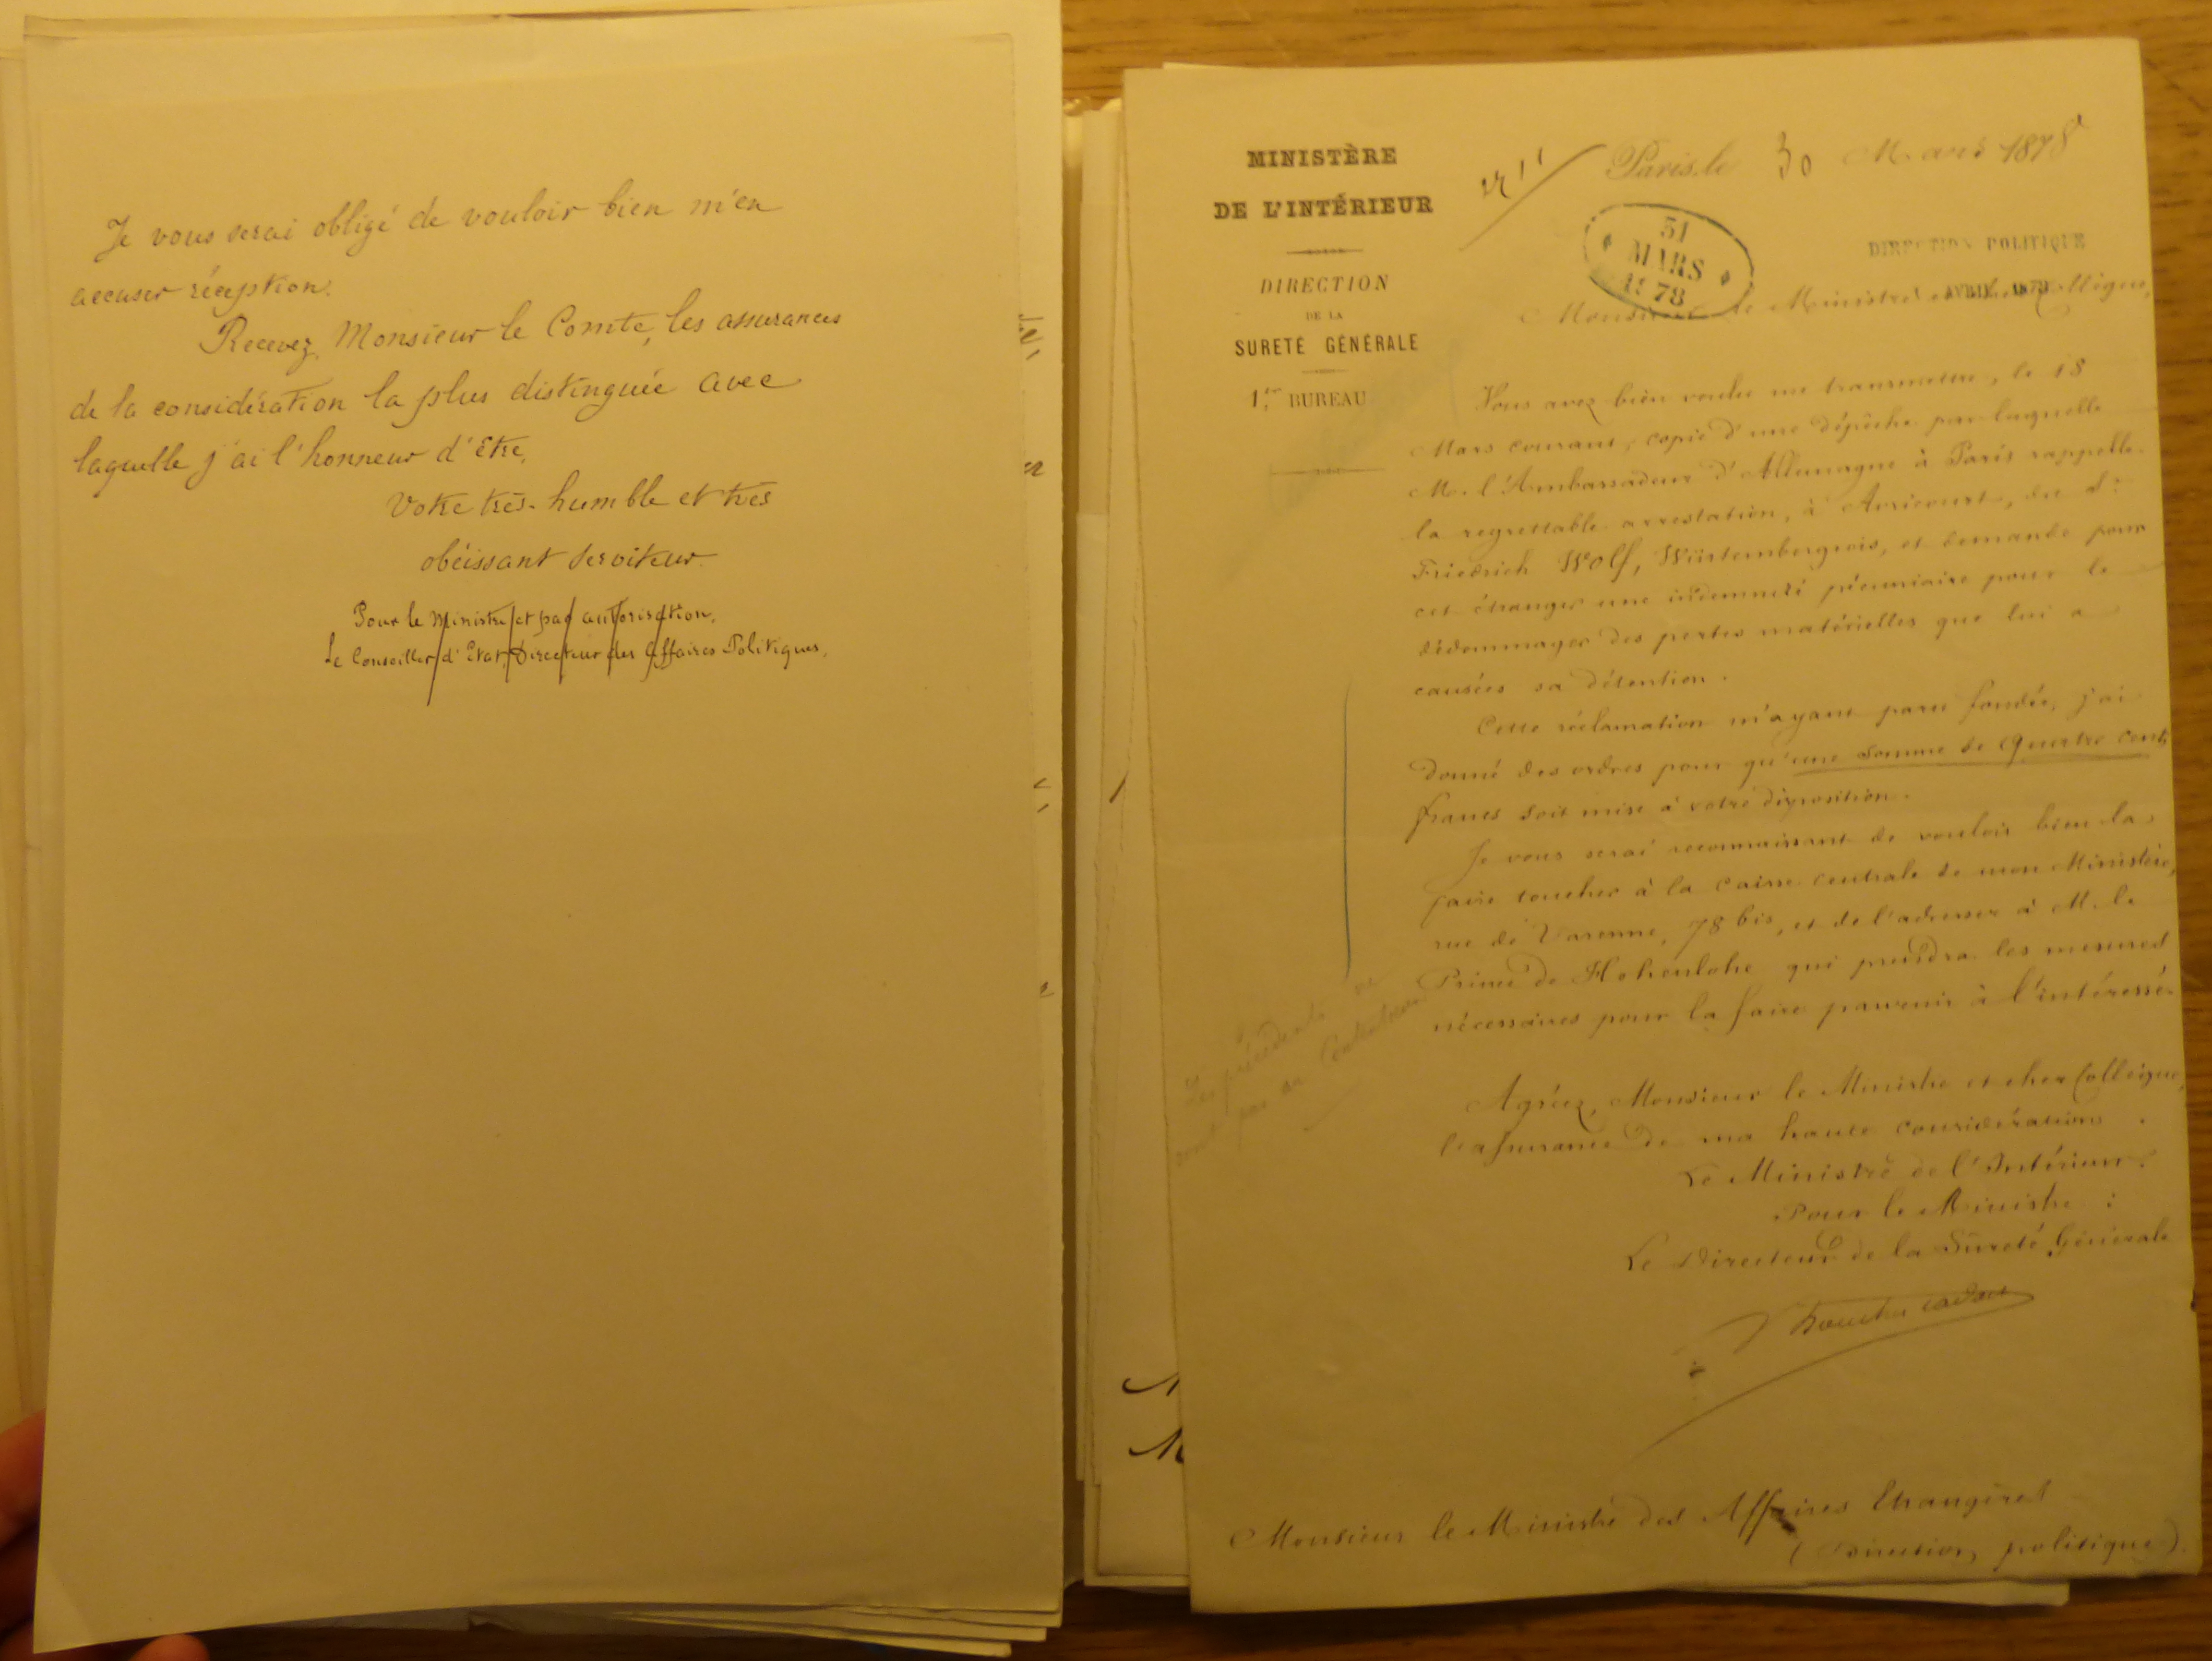 Je vous serai obligé de vouloir bien m'en
accuser réception.
Recevez, Monsieur le Comte, les assurances
de la considération la plus distinguée avec
laquelle j'ai l'honneur d'être,
Votre très-humble et très
obéissant serviteur.
Pour le Ministre et par autorisation,
Le Conseiller d'Etat, Directeur des Affaires Politiques,
MINISTÈRE
DE L'INTÉRIEUR
DIRECTION
DE LA
SURETÉ GÉNÉRALE
1.er BUREAU
Paris, le 30 Mars 1878
31
MARS
1878
DIRECTION POLITIQUE
AVRIL 1878
Monsieur le Ministre et cher Collègue,
Vous avez bien voulu me transmettre, le 18
Mars courant, copie d'une dépêche par laquelle
M. l'Ambassadeur d'Allemagne à Paris rappelle
la regrettable arrestation, à Avricourt, du Sr
Friedrich Wolf, Würtembergeois, et demande pour
cet étranger une indemnité pécuniaire pour le
dédommager des pertes matérielles que lui a
causées sa détention.
Cette réclamation m'ayant paru fondée, j'ai
donné des ordres pour qu'une somme de quatre cents
francs soit mise à votre disposition.
Je vous serai reconnaissant de vouloir bien la
faire toucher à la caisse centrale de mon Ministère,
rue de Varenne, 78 bis, et de l'adresser à M. le
Prince de Hohenlohe qui prendra les mesures
nécessaires pour la faire parvenir à l'intéressé.
Les précédents ne
sont pas au Contentieux
Agréez, Monsieur le Ministre et cher Collègue,
l'assurance de ma haute considération.
Le Ministre de l'Intérieur.
Pour le Ministre :
Le Directeur de la Sûreté Générale
Monsieur le Ministre des Affaires Etrangères
(Direction politique).